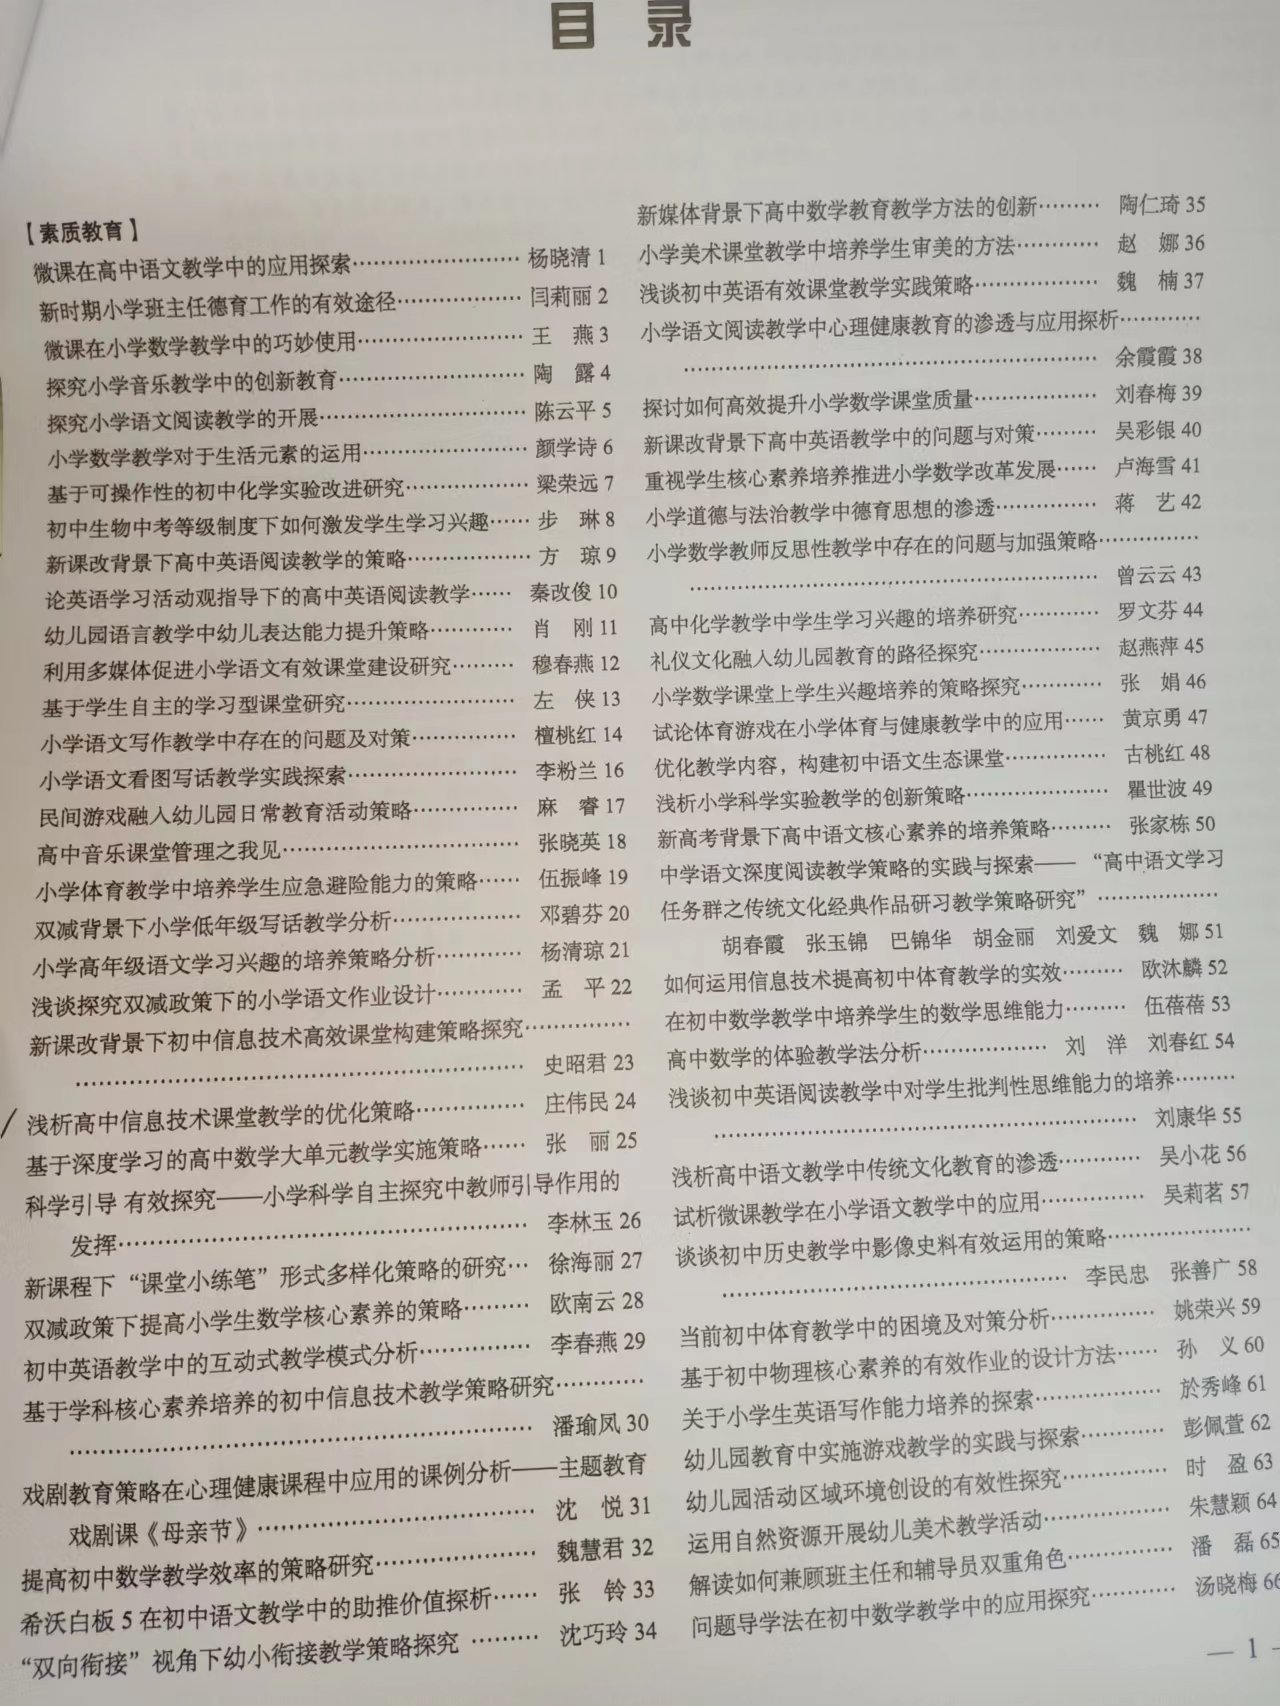 目 录
【素质教育】
微课在高中语文教学中的应用探索…………………… 杨晓清 1
新时期小学班主任德育工作的有效途径……………… 闫莉丽 2
微课在小学数学教学中的巧妙使用…………………… 王　燕 3
探究小学音乐教学中的创新教育……………………… 陶　露 4
探究小学语文阅读教学的开展………………………… 陈云平 5
小学数学教学对于生活元素的运用…………………… 颜学诗 6
基于可操作性的初中化学实验改进研究……………… 梁荣远 7
初中生物中考等级制度下如何激发学生学习兴趣…… 步　琳 8
新课改背景下高中英语阅读教学的策略……………… 方　琼 9
论英语学习活动观指导下的高中英语阅读教学…… 秦改俊 10
幼儿园语言教学中幼儿表达能力提升策略………… 肖　刚 11
利用多媒体促进小学语文有效课堂建设研究……… 穆春燕 12
基于学生自主的学习型课堂研究…………………… 左　侠 13
小学语文写作教学中存在的问题及对策…………… 檀桃红 14
小学语文看图写话教学实践探索…………………… 李粉兰 16
民间游戏融入幼儿园日常教育活动策略…………… 麻　睿 17
高中音乐课堂管理之我见…………………………… 张晓英 18
小学体育教学中培养学生应急避险能力的策略…… 伍振峰 19
双减背景下小学低年级写话教学分析……………… 邓碧芬 20
小学高年级语文学习兴趣的培养策略分析………… 杨清琼 21
浅谈探究双减政策下的小学语文作业设计………… 孟　平 22
新课改背景下初中信息技术高效课堂构建策略探究……………
………………………………………………… 史昭君 23
浅析高中信息技术课堂教学的优化策略…………… 庄伟民 24
基于深度学习的高中数学大单元教学实施策略…… 张　丽 25
科学引导 有效探究——小学科学自主探究中教师引导作用的
发挥……………………………………………… 李林玉 26
新课程下“课堂小练笔”形式多样化策略的研究… 徐海丽 27
双减政策下提高小学生数学核心素养的策略……… 欧南云 28
初中英语教学中的互动式教学模式分析…………… 李春燕 29
基于学科核心素养培养的初中信息技术教学策略研究…………
………………………………………………… 潘瑜凤 30
戏剧教育策略在心理健康课程中应用的课例分析——主题教育
戏剧课《母亲节》……………………………… 沈　悦 31
提高初中数学教学效率的策略研究………………… 魏慧君 32
希沃白板 5 在初中语文教学中的助推价值探析…… 张　铃 33
“双向衔接”视角下幼小衔接教学策略探究 ……… 沈巧玲 34
新媒体背景下高中数学教育教学方法的创新……… 陶仁琦 35
小学美术课堂教学中培养学生审美的方法………… 赵　娜 36
浅谈初中英语有效课堂教学实践策略……………… 魏　楠 37
小学语文阅读教学中心理健康教育的渗透与应用探析…………
………………………………………………… 余霞霞 38
探讨如何高效提升小学数学课堂质量……………… 刘春梅 39
新课改背景下高中英语教学中的问题与对策……… 吴彩银 40
重视学生核心素养培养推进小学数学改革发展…… 卢海雪 41
小学道德与法治教学中德育思想的渗透…………… 蒋　艺 42
小学数学教师反思性教学中存在的问题与加强策略……………
………………………………………………… 曾云云 43
高中化学教学中学生学习兴趣的培养研究………… 罗文芬 44
礼仪文化融入幼儿园教育的路径探究……………… 赵燕萍 45
小学数学课堂上学生兴趣培养的策略探究………… 张　娟 46
试论体育游戏在小学体育与健康教学中的应用…… 黄京勇 47
优化教学内容，构建初中语文生态课堂…………… 古桃红 48
浅析小学科学实验教学的创新策略………………… 瞿世波 49
新高考背景下高中语文核心素养的培养策略……… 张家栋 50
中学语文深度阅读教学策略的实践与探索——“高中语文学习
任务群之传统文化经典作品研习教学策略研究”………………
胡春霞　张玉锦　巴锦华　胡金丽　刘爱文　魏　娜 51
如何运用信息技术提高初中体育教学的实效……… 欧沐麟 52
在初中数学教学中培养学生的数学思维能力……… 伍蓓蓓 53
高中数学的体验教学法分析……………… 刘　洋　刘春红 54
浅谈初中英语阅读教学中对学生批判性思维能力的培养………
………………………………………………… 刘康华 55
浅析高中语文教学中传统文化教育的渗透………… 吴小花 56
试析微课教学在小学语文教学中的应用…………… 吴莉茗 57
谈谈初中历史教学中影像史料有效运用的策略…………………
………………………………………… 李民忠　张善广 58
当前初中体育教学中的困境及对策分析…………… 姚荣兴 59
基于初中物理核心素养的有效作业的设计方法…… 孙　义 60
关于小学生英语写作能力培养的探索……………… 於秀峰 61
幼儿园教育中实施游戏教学的实践与探索………… 彭佩萱 62
幼儿园活动区域环境创设的有效性探究…………… 时　盈 63
运用自然资源开展幼儿美术教学活动……………… 朱慧颖 64
解读如何兼顾班主任和辅导员双重角色…………… 潘　磊 65
问题导学法在初中数学教学中的应用探究………… 汤晓梅 66
— 1 —